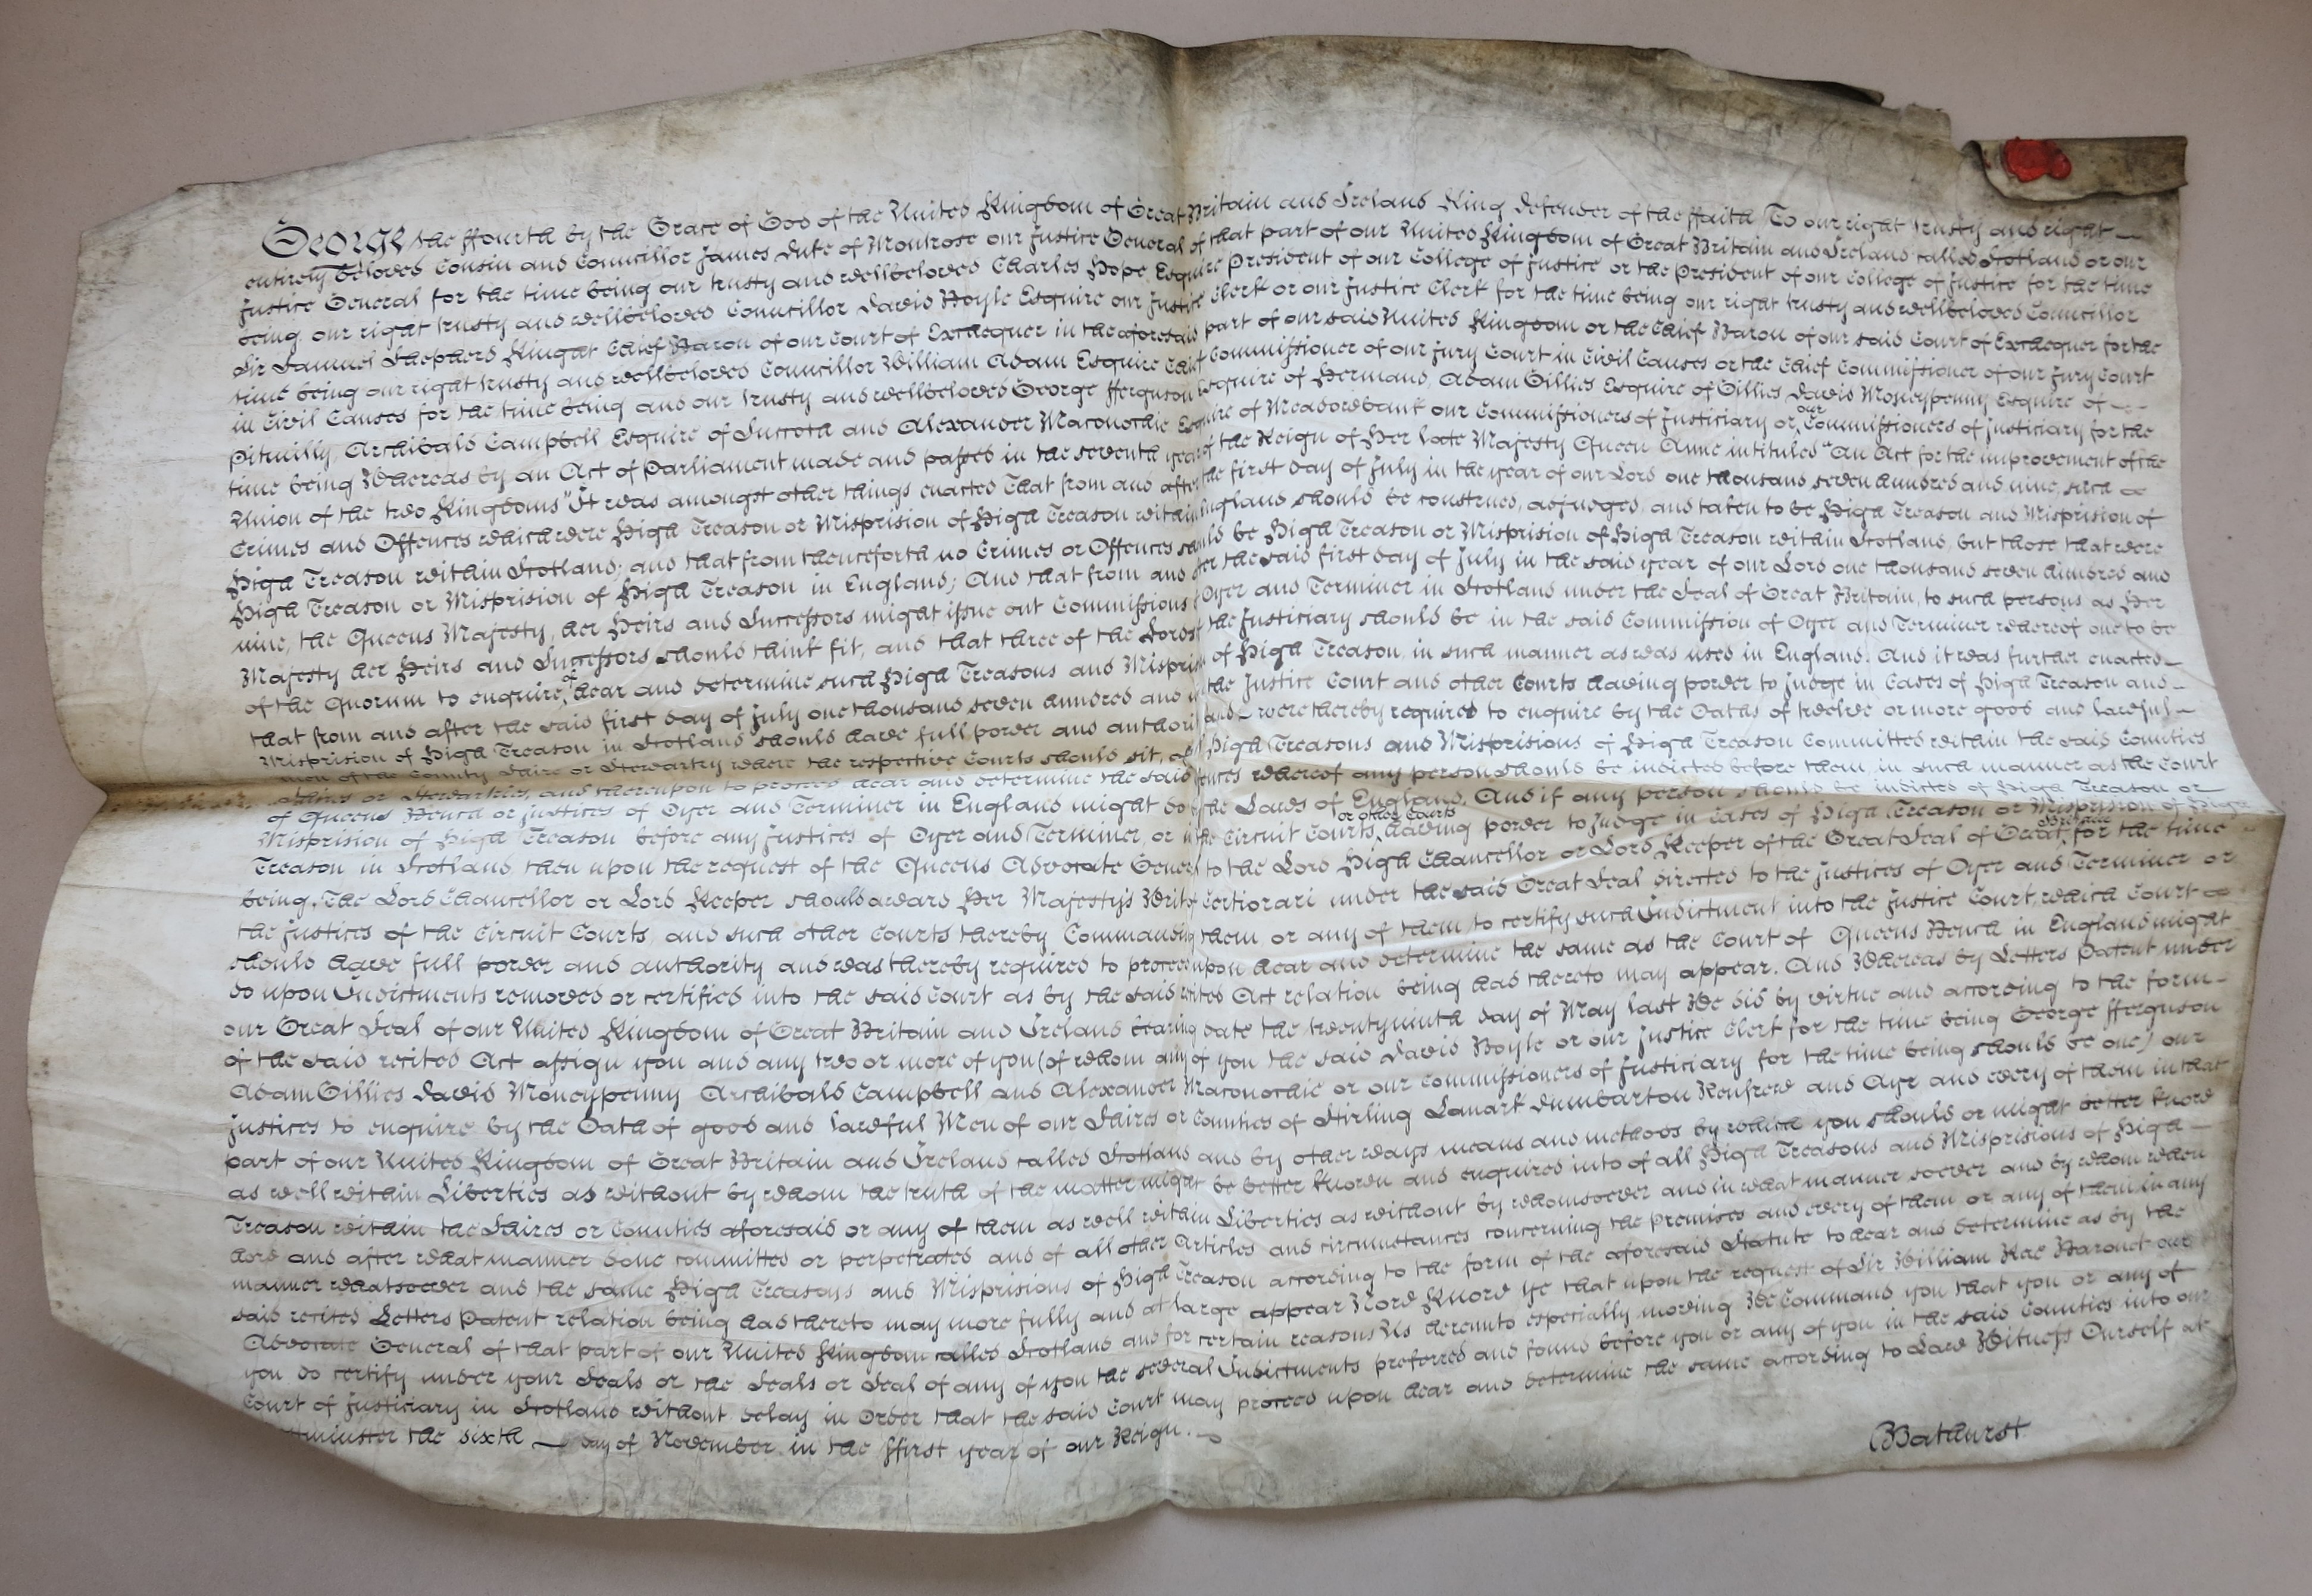 George the ffourth by the Grace of God of the United Kingdom of Great Britain and Ireland King Defender of the ffaith To our right trusty and right
entirely beloved Cousin and Councillor James Duke of Montrose our Justice General of that part of our United Kingdom of Great Britain and Ireland called Scotland or our
Justice General for the time being our trusty and wellbeloved Charles Hope Esquire President of our College of Justice or the President of our College of Justice for the time
being our right trusty and wellbeloved Councillor David Boyle Esquire our Justice Clerk or our Justice Clerk for the time being our right trusty and wellbeloved Councillor
Sir Samuel Shepherd Knight Chief Baron of our Court of Exchequer in the aforesaid part of our said United Kingdom or the Chief Baron of our said Court of Exchequer for the
time being our right trusty and wellbeloved Councillor William Adam Esquire Chief Commissioner of our Jury Court in Civil Causes or the Chief Commissioner of our Jury Court
in Civil Causes for the time being and our trusty and wellbeloved George fferguson Esquire of Hermand, Adam Gillies Esquire of Gillies David Moneypenny Esquire of
Pitmilly Archibald Campbell Esquire of Succoth and Alexander Maconochie Esquire of Meadowbank our Commissioners of Justiciary or our Commissioners of Justiciary for the
time being Whereas by an Act of Parliament made and passed in the seventh year of the Reign of Her late Majesty Queen Anne intituled "An Act for the improvement of the
Union of the two Kingdoms" It was amongst other things enacted That from and after the first day of July in the year of our Lord one thousand seven hundred and nine, such
Crimes and Offences which were High Treason or Misprision of High Treason within England should be construed, adjudged, and taken to be High Treason and Misprision of
High Treason within Scotland; and that from thenceforth no Crimes or Offences should be High Treason or Misprision of High Treason within Scotland, but those that were
High Treason or Misprision of High Treason in England; And that from and after the said first day of July in the said year of our Lord one thousand seven hundred and
nine, the Queens Majesty, her Heirs and Successors might issue out Commissions of Oyer and Terminer in Scotland under the Seal of Great Britain, to such persons as Her
Majesty her Heirs and Successors should think fit, and that three of the Lords of the Justiciary should be in the said Commission of Oyer and Terminer whereof one to be
of the Quorum to enquire of, hear and determine such High Treasons and Misprisions of High Treason, in such manner as was used in England. And it was further enacted
that from and after the said first day of July one thousand seven hundred and nine the Justice Court and other Courts having power to Judge in Cases of High Treason and
Misprision of High Treason in Scotland should have full power and authority and were thereby required to enquire by the Oaths of twelve or more good and lawful
men of the County Shire or Stewartry where the respective Courts should sit, of High Treasons and Misprisions of High Treason Committed within the said Counties
Shires or Stewartries, and thereupon to proceed hear and determine the said Offences whereof any person should be indicted before them, in such manner as the Court
of Queens Bench or Justices of Oyer and Terminer in England might do by the Laws of England. And if any person should be indicted of High Treason or
Misprision of High Treason before any Justices of Oyer and Terminer, or in the Circuit Courts, or other Courts having power to Judge in Cases of High Treason or Misprision of High
Treason in Scotland, then upon the request of the Queens Advocate General to the Lord High Chancellor or Lord Keeper of the Great Seal of Great Britain for the time
being, The Lord Chancellor or Lord Keeper should award Her Majesty's Writ of Certiorari under the said Great Seal directed to the Justices of Oyer and Terminer or
the Justices of the Circuit Courts, and such other Courts thereby Commanding them, or any of them to certify such Indictment into the Justice Court, which Court
should have full power and authority and was thereby required to proceed upon hear and determine the same as the Court of Queens Bench in England might
do upon Indictments removed or certified into the said Court as by the said recited Act relation being had thereto may appear. And Whereas by Letters Patent under
our Great Seal of our United Kingdom of Great Britain and Ireland bearing date the twentyninth day of May last We did by virtue and according to the form
of the said recited Act assign you and any two or more of you (of whom any of you the said David Boyle or our Justice Clerk for the time being George fferguson
Adam Gillies David Moneypenny Archibald Campbell and Alexander Maconochie or our Commissioners of Justiciary for the time being should be one) our
Justices to enquire by the Oath of good and lawful Men of our Shires or Counties of Stirling Lanark Dumbarton Renfrew and Ayr and every of them in that
part of our United Kingdom of Great Britain and Ireland called Scotland and by other ways means and methods by which you should or might better know
as well within Liberties as without by whom the truth of the matter might be better known and enquired into of all High Treasons and Misprisions of High
Treason within the Shires or Counties aforesaid or any of them as well within Liberties as without by whomsoever and in what manner soever and by whom when
how and after what manner done committed or perpetrated and of all other Articles and circumstances concerning the premises and every of them or any of them in any
manner whatsoever and the same High Treasons and Misprisions of High Treason according to the form of the aforesaid Statute to hear and determine as by the
said recited Letters Patent relation being had thereto may more fully and at large appear Now Know Ye that upon the request of Sir William Rae Baronet our
Advocate General of that part of our United Kingdom called Scotland and for certain reasons Us hereunto especially moving We Command you that you or any of
you do certify under your Seals or the Seals or Seal of any of you the several Indictments preferred and found before you or any of you in the said Counties into our
Court of Justiciary in Scotland without delay in Order that the said Court may proceed upon hear and determine the same according to Law Witness Ourself at
tminster the sixth day of November in the ffirst year of our Reign.
Bathurst